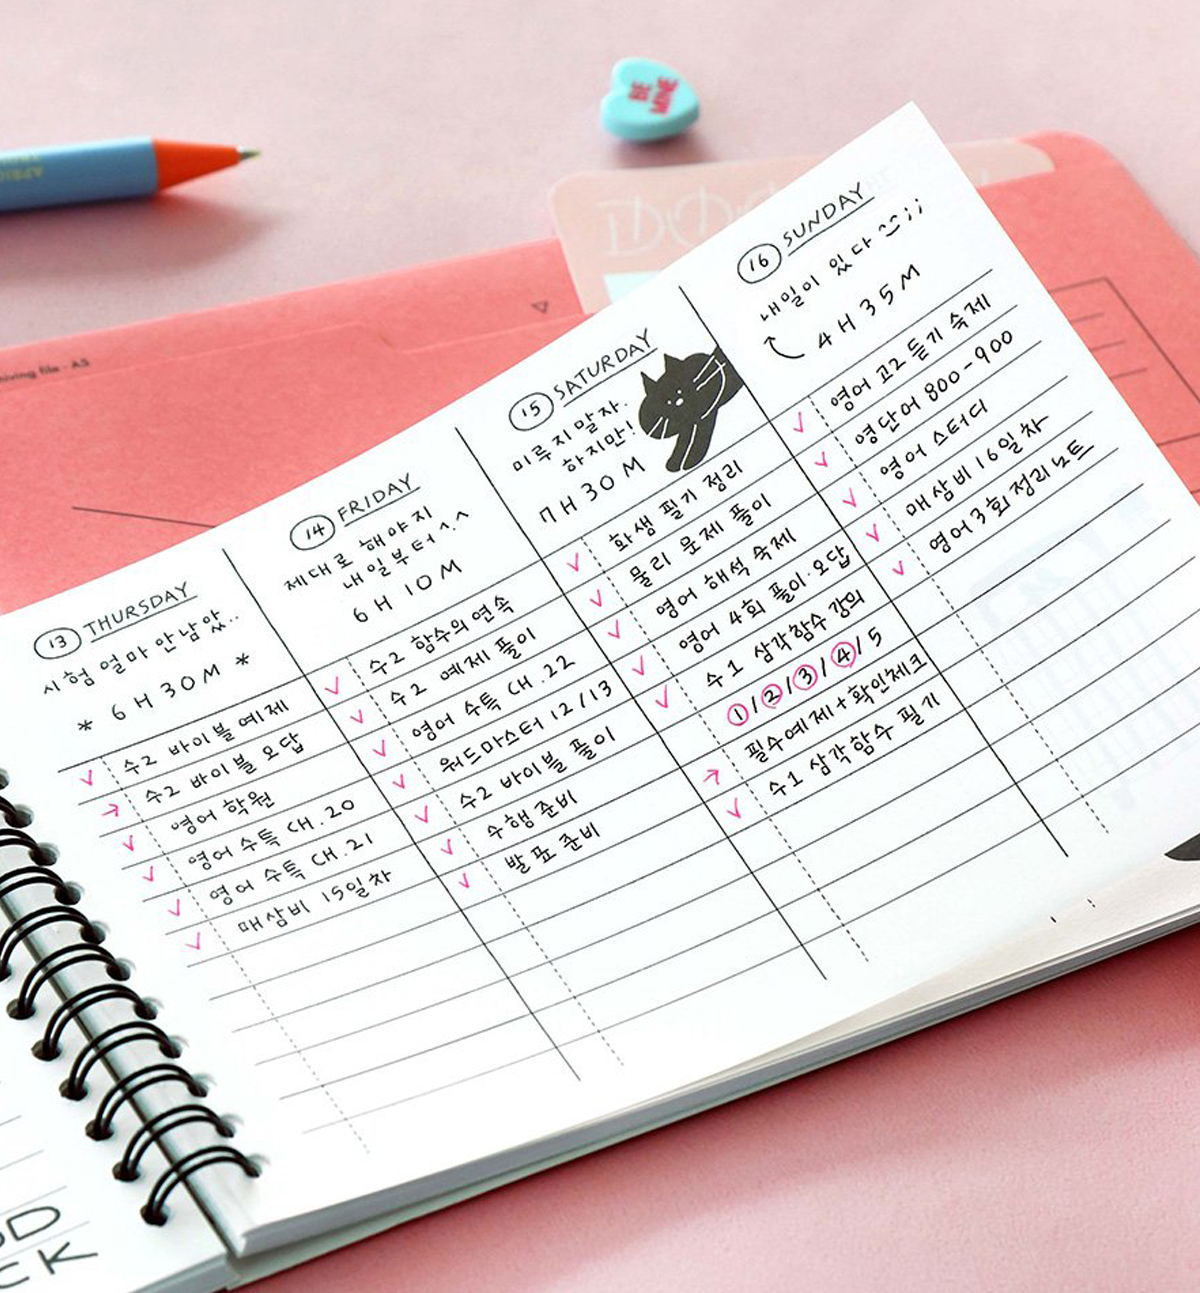 BE
MINE
APRICO
hiving file · A5
13 THURSDAY
시험 얼마 안 남았..
* 6H 30M *
수2 바이블 예제
수2 바이블 오답
영어 학원
영어 수특 CH.20
영어 수특 CH.21
매삼비 15일차
14 FRIDAY
제대로 해야지
내일부터^.^
6H 10M
수2 함수의 연속
수2 예제 풀이
영어 수특 CH.22
워드마스터 12/13
수2 바이블 풀이
수행 준비
발표 준비
15 SATURDAY
미루지 말자.
하지만!
7H 30M
화생 필기 정리
물리 문제 풀이
영어 해석 숙제
영어 4회 풀이·오답
수1 삼각함수 강의
1/2/3/4/5
필수예제+확인체크
수1 삼각함수 필기
16 SUNDAY
내일이 있다 ;;
4H 35M
영어 고2 듣기 숙제
영단어 800-900
영어 스터디
매삼비 16일차
영어 3회 정리 노트
OD
CK